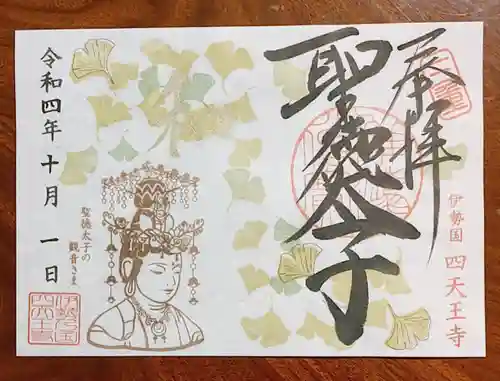 奉拝
聖徳太子
伊勢国 四天王寺
聖徳太子の
観音さま
令和四年十月一日